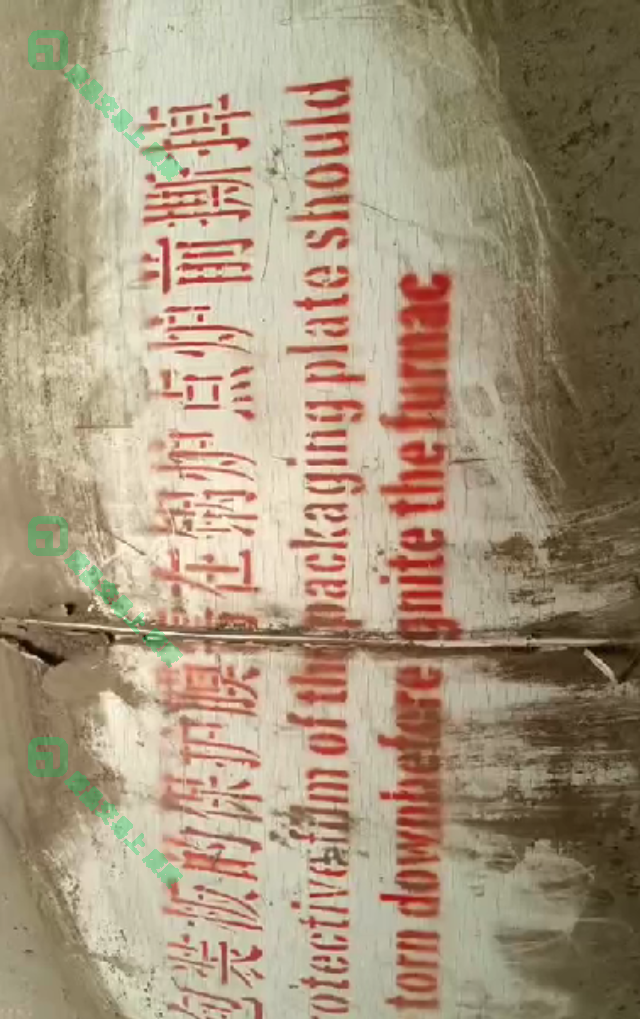 包装板的保护膜请在锅炉点炉前撕掉
rotective film of the packaging plate should
torn downbefore gnite the furnac